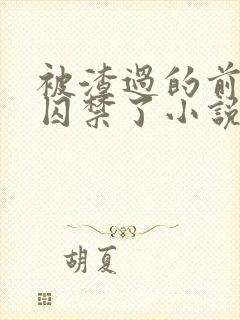 被渣過的前
囚禁了小說
胡夏